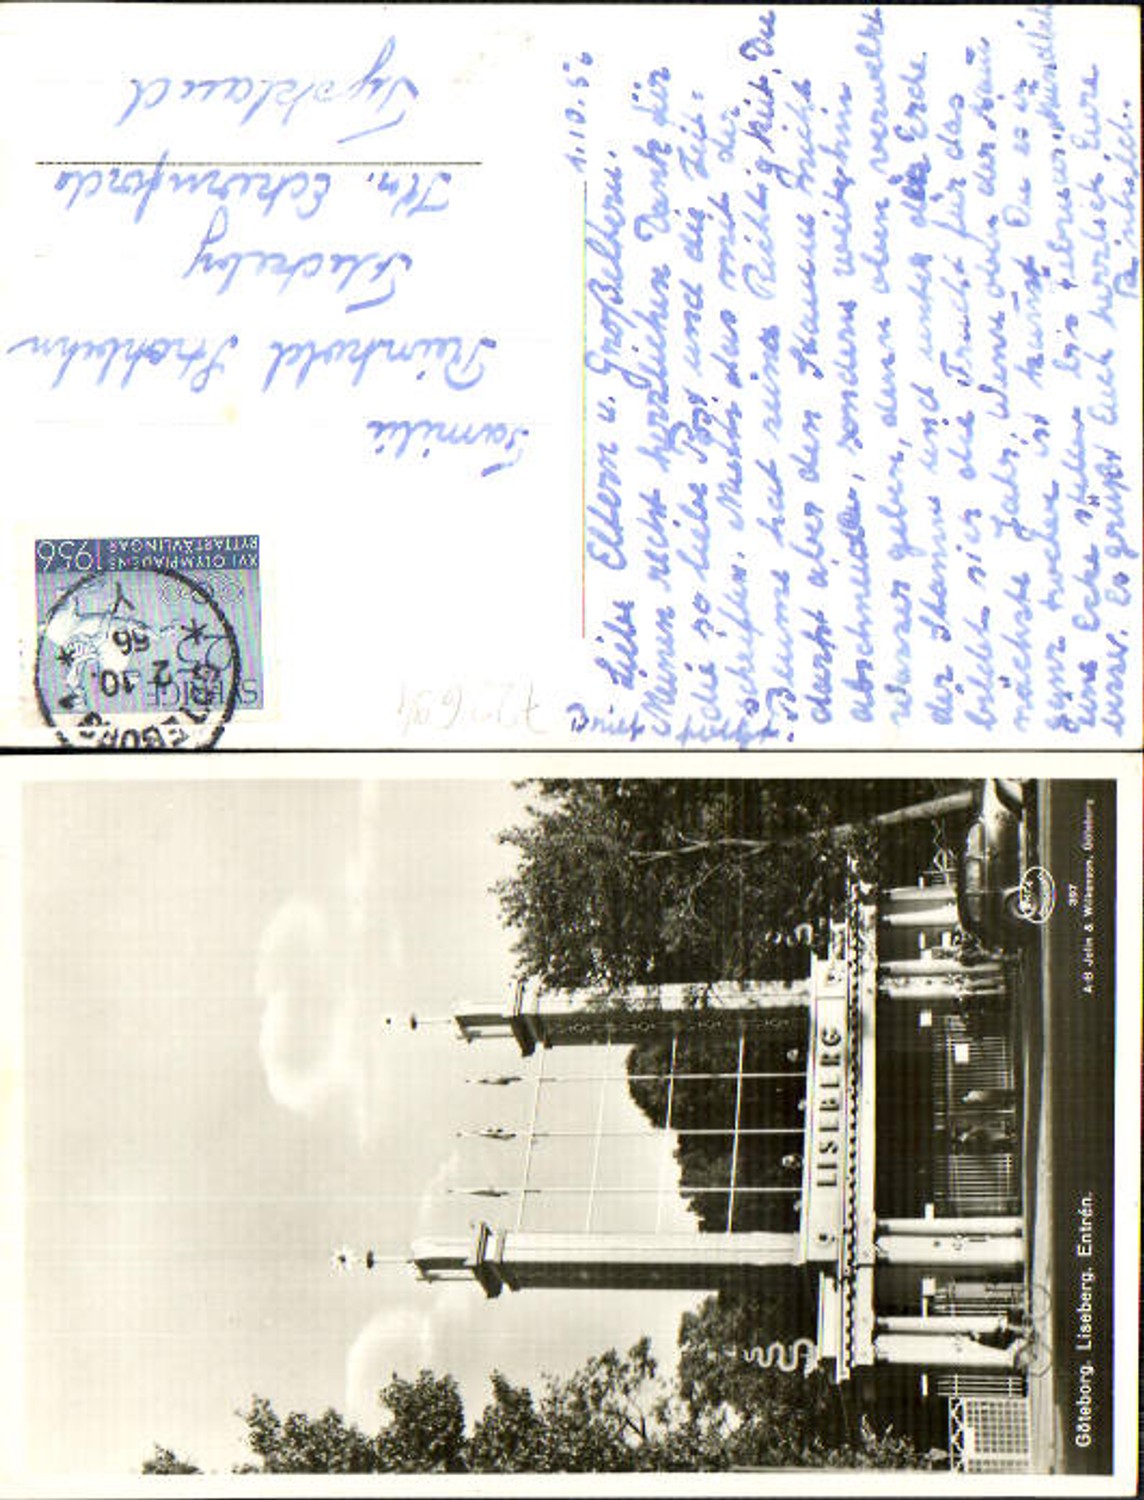 1.10.56
Liebe Eltern u. Großeltern.
Meinen recht herzlichen Dank für
die so liebe Post und die Zeit-
schriften. Mutti das mit der
Blume hat seine Richtigkeit, Du
darfst aber den Stamm nicht
abschneiden, sondern weiterhin
Wasser geben, denn oben verwelkt
der Stamm und unter der Erde
bildet sich die Frucht für das
nächste Jahr. Wenn oben der Stamm
ganz trocken ist kannst Du es in
eine Ecke stellen bis Februar.
Es grüßt Euch herzlich Eure
Familie
Reinhold Strohbehn
Fleckeby
Krs. Eckernförde
Tyskland
SVERIGE
XVI OLYMPIADENS
RYTTARTÄVLINGAR
1956
GÖTEBORG
2.10.
56
LISEBERG
Göteborg. Liseberg. Entrén.
397
A-B Jelin & Wilkenson, Göteborg